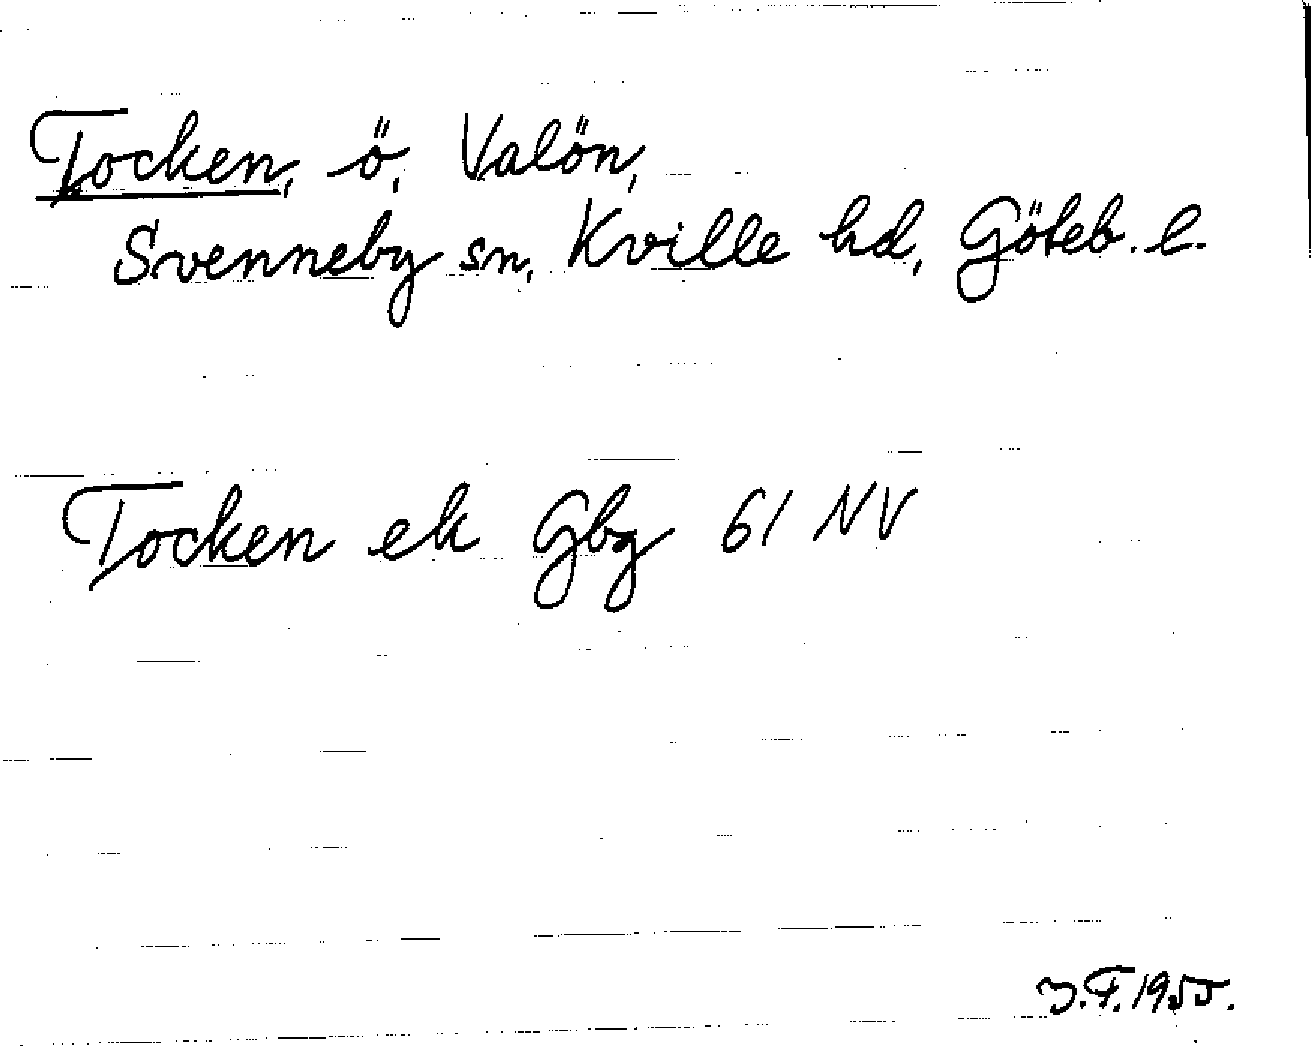 Tocken, ö, Valön,
Svenneby sn, Kville hd, Göteb. l.
Tocken ek Gbg 61 NV
J.F. 1955.